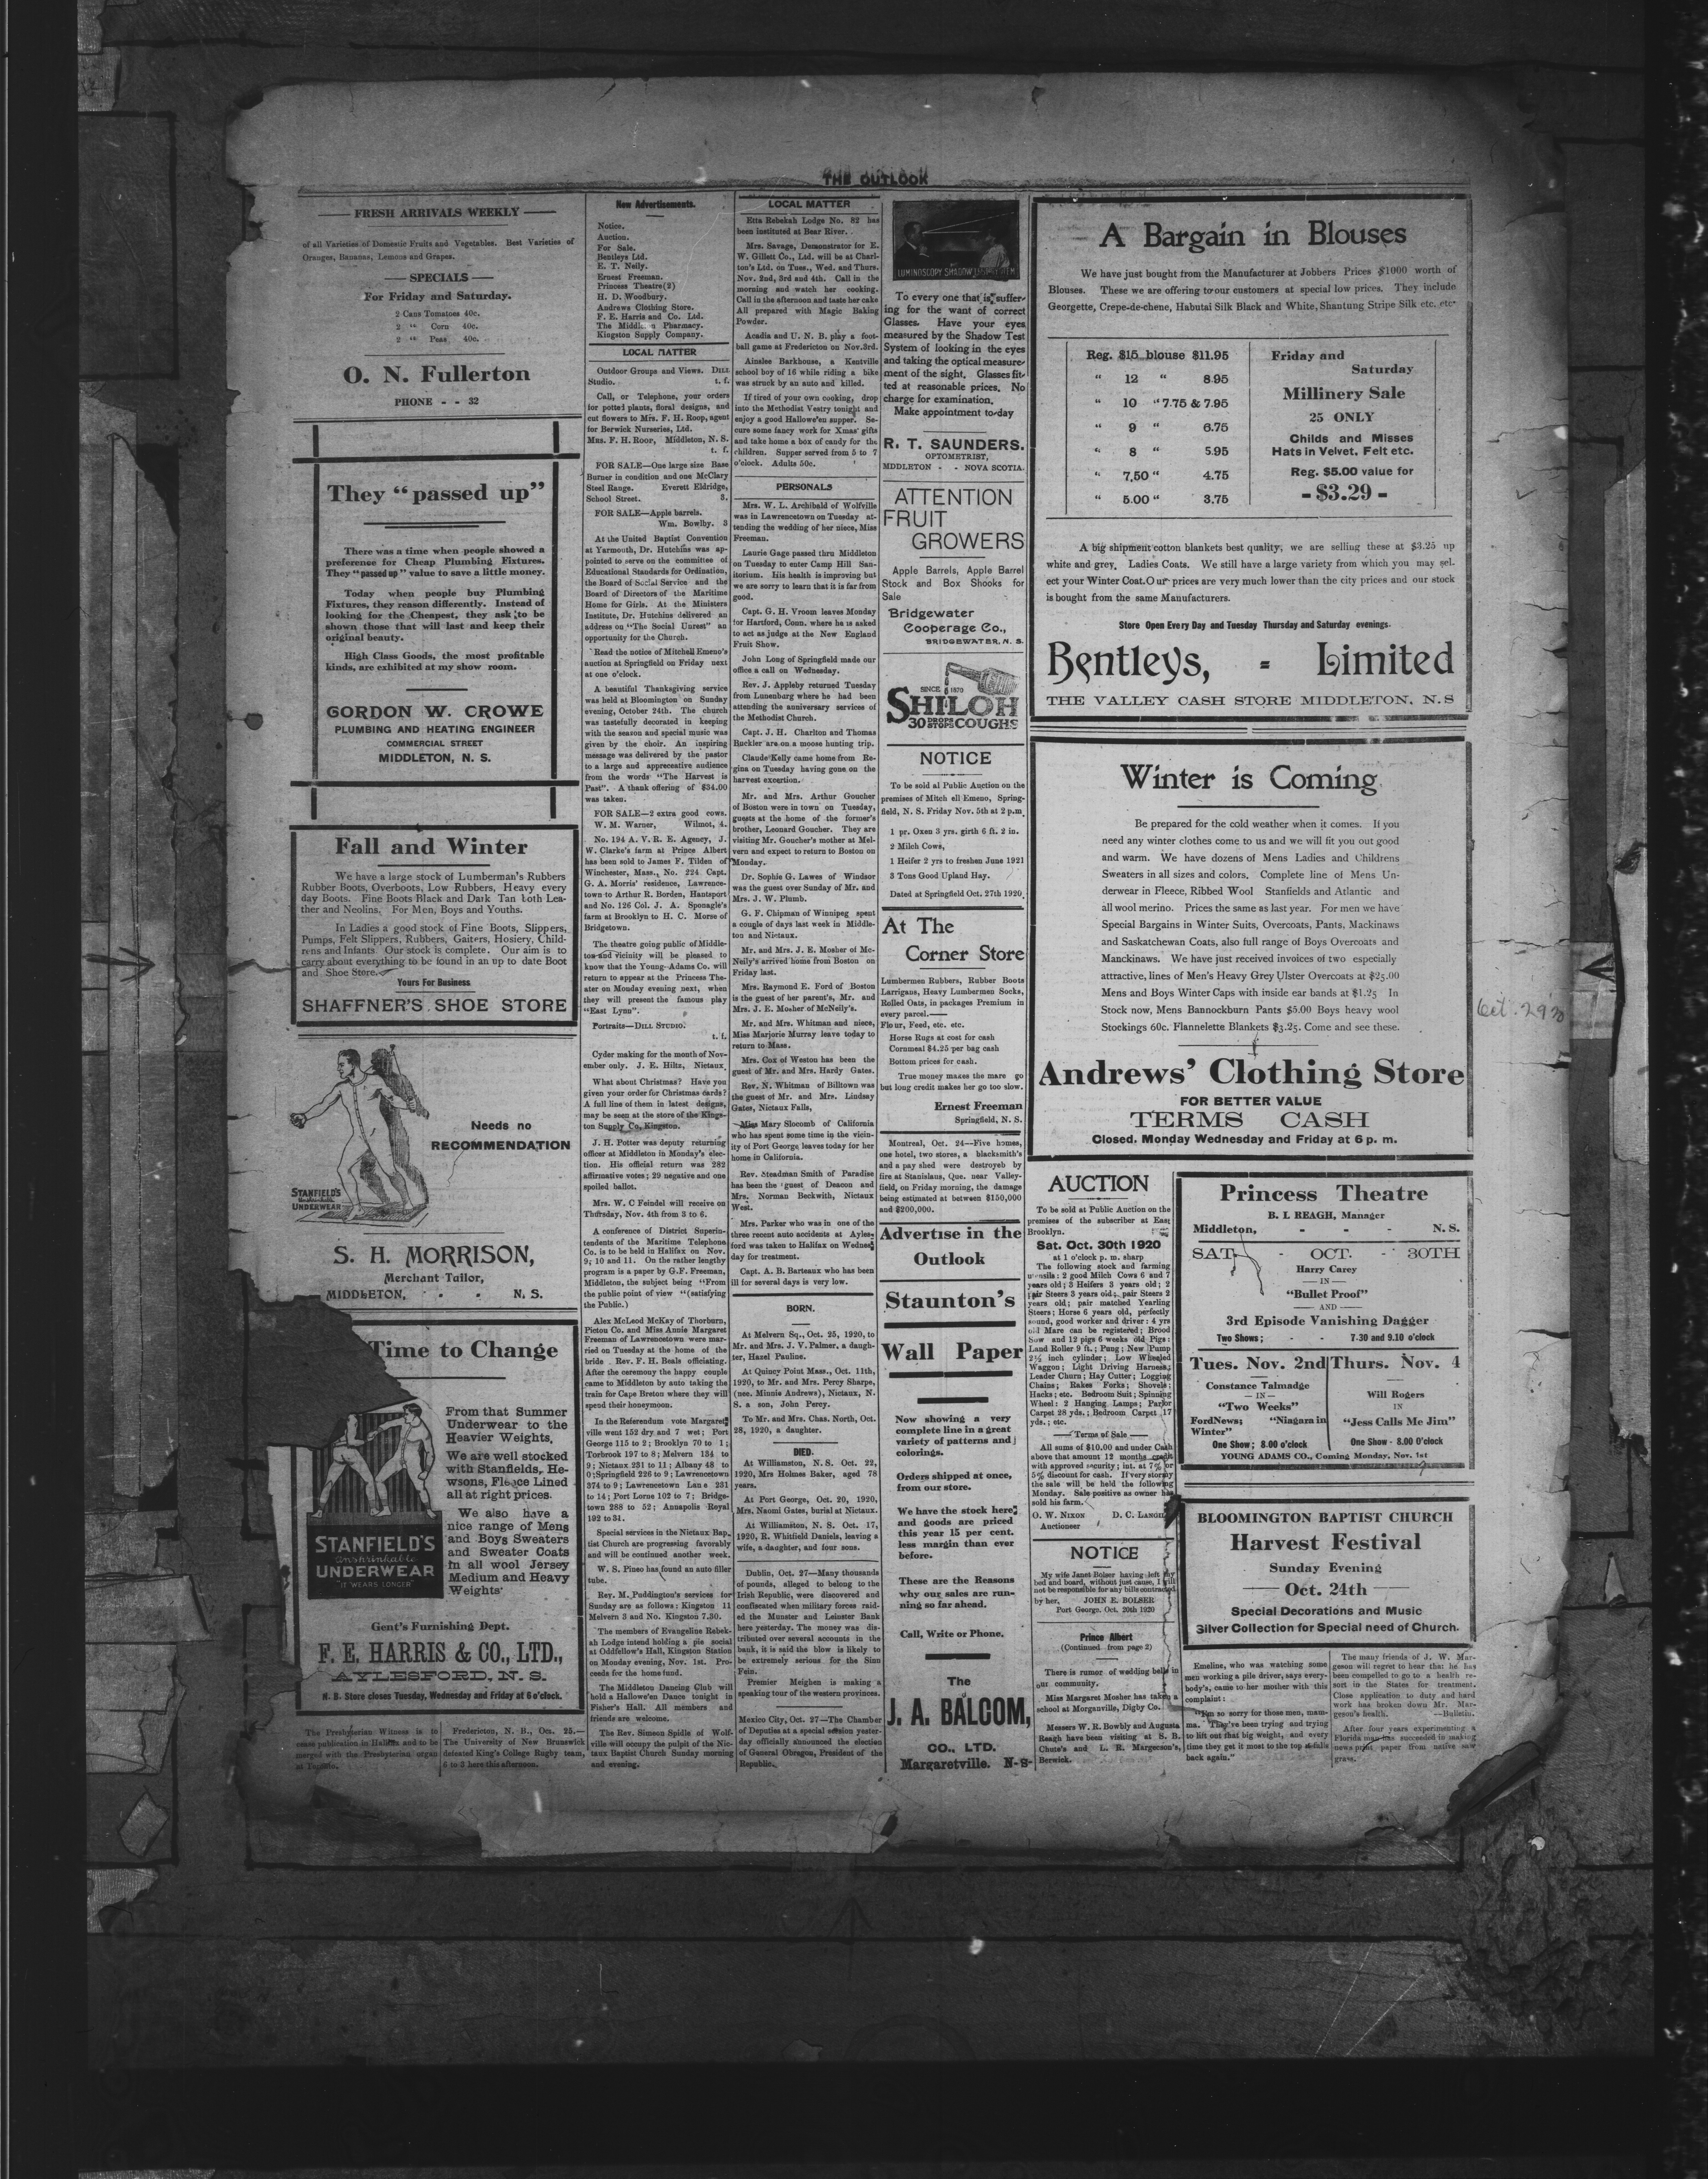 THE OUTLOOK
FRESH ARRIVALS WEEKLY
of all Varieties of Domestic Fruits and Vegetables. Best Varieties of
Oranges, Bananas, Lemons and Grapes.
SPECIALS
For Friday and Saturday.
2 Cans Tomatoes 40c.
2 " Corn 40c.
2 " Peas 40c.
O. N. Fullerton
PHONE - - 32
They "passed up"
There was a time when people showed a
preference for Cheap Plumbing Fixtures.
They "passed up" value to save a little money.
Today when people buy Plumbing
Fixtures, they reason differently. Instead of
looking for the Cheapest, they ask to be
shown those that will last and keep their
original beauty.
High Class Goods, the most profitable
kinds, are exhibited at my show room.
GORDON W. CROWE
PLUMBING AND HEATING ENGINEER
COMMERCIAL STREET
MIDDLETON, N. S.
Fall and Winter
We have a large stock of Lumberman's Rubbers
Rubber Boots, Overboots, Low Rubbers, Heavy every
day Boots. Fine Boots Black and Dark Tan both Lea-
ther and Neolins. For Men, Boys and Youths.
In Ladies a good stock of Fine Boots, Slippers,
Pumps, Felt Slippers, Rubbers, Gaiters, Hosiery, Child-
rens and Infants. Our stock is complete. Our aim is to
carry about everything to be found in an up to date Boot
and Shoe Store.
Yours For Business
SHAFFNER'S SHOE STORE
Needs no
RECOMMENDATION
STANFIELD'S
Unshrinkable
UNDERWEAR
S. H. MORRISON,
Merchant Tailor,
MIDDLETON, - - N. S.
Time to Change
From that Summer
Underwear to the
Heavier Weights,
We are well stocked
with Stanfields, He-
wsons, Fleece Lined
all at right prices.
We also have a
nice range of Mens
and Boys Sweaters
and Sweater Coats
in all wool Jersey
Medium and Heavy
Weights
STANFIELD'S
Unshrinkable
UNDERWEAR
"IT WEARS LONGER"
Gent's Furnishing Dept.
F. E. HARRIS & CO., LTD.,
AYLESFORD, N. S.
N. B. Store closes Tuesday, Wednesday and Friday at 6 o'clock.
The Presbyterian Witness is to
cease publication in Halifax and to be
merged with the Presbyterian organ
at Toronto.
Fredericton, N. B., Oct. 25.—
The University of New Brunswick
defeated King's College Rugby team,
6 to 3 here this afternoon.
New Advertisements.
Notice.
Auction.
For Sale.
Bentleys Ltd.
E. T. Neily.
Ernest Freeman.
Princess Theatre(2)
H. D. Woodbury.
Andrews Clothing Store.
F. E. Harris and Co. Ltd.
The Middleton Pharmacy.
Kingston Supply Company.
LOCAL MATTER
Outdoor Groups and Views. DILL
Studio. t. f.
Call, or Telephone, your orders
for potted plants, floral designs, and
cut flowers to Mrs. F. H. Roop, agent
for Berwick Nurseries, Ltd.
MRS. F. H. ROOP, Middleton, N. S.
t. f.
FOR SALE—One large size Base
Burner in condition and one McClary
Steel Range. Everett Eldridge,
School Street. 3,
FOR SALE—Apple barrels.
Wm. Bowlby. 3
At the United Baptist Convention
at Yarmouth, Dr. Hutchins was ap-
pointed to serve on the committee of
Educational Standards for Ordination,
the Board of Social Service and the
Board of Directors of the Maritime
Home for Girls. At the Ministers
Institute, Dr. Hutchins delivered an
address on "The Social Unrest" an
opportunity for the Church.
Read the notice of Mitchell Emeno's
auction at Springfield on Friday next
at one o'clock.
A beautiful Thanksgiving service
was held at Bloomington on Sunday
evening, October 24th. The church
was tastefully decorated in keeping
with the season and special music was
given by the choir. An inspiring
message was delivered by the pastor
to a large and apprecestive audience
from the words "The Harvest is
Past". A thank offering of $34.00
was taken.
FOR SALE—2 extra good cows.
W. M. Warner, Wilmot, 4.
No. 194 A. V. R. E. Agency, J.
W. Clarke's farm at Prince Albert
has been sold to James F. Tilden of
Winchester, Mass., No. 224 Capt.
G. A. Morris' residence, Lawrence-
town to Arthur R. Borden, Hantsport
and No. 126 Col. J. A. Sponagle's
farm at Brooklyn to H. C. Morse of
Bridgetown.
The theatre going public of Middle-
ton and vicinity will be pleased to
know that the Young-Adams Co. will
return to appear at the Princess The-
ater on Monday evening next, when
they will present the famous play
"East Lynn".
Portraits—DILL STUDIO.
t. f.
Cyder making for the month of Nov-
ember only. J. E. Hiltz, Nictaux.
What about Christmas? Have you
given your order for Christmas cards?
A full line of them in latest designs,
may be seen at the store of the Kings-
ton Supply Co. Kingston.
J. H. Potter was deputy returning
officer at Middleton in Monday's elec-
tion. His official return was 282
affirmative votes; 29 negative and one
spoiled ballot.
Mrs. W. C Feindel will receive on
Thursday, Nov. 4th from 3 to 6.
A conference of District Superin-
tendents of the Maritime Telephone
Co. is to be held in Halifax on Nov.
9; 10 and 11. On the rather lengthy
program is a paper by G.F. Freeman,
Middleton, the subject being "From
the public point of view "(satisfying
the Public.)
Alex McLeod McKay of Thorburn,
Pictou Co. and Miss Annie Margaret
Freeman of Lawrencetown were mar-
ried on Tuesday at the home of the
bride . Rev. F. H. Beals officiating.
After the ceremony the happy couple
came to Middleton by auto taking the
train for Cape Breton where they will
spend their honeymoon.
In the Referendum vote Margaret
ville went 152 dry and 7 wet; Port
George 115 to 2; Brooklyn 70 to 1;
Torbrook 197 to 8; Melvern 134 to
9; Nictaux 231 to 11; Albany 48 to
0;Springfield 226 to 9; Lawrencetown
374 to 9; Lawrencetown Lane 231
to 14; Port Lorne 102 to 7; Bridge-
town 288 to 52; Annapolis Royal
192 to 31.
Special services in the Nictaux Bap-
tist Church are progressing favorably
and will be continued another week.
W. S. Pineo has found an auto filler
tube.
Rev. M. Puddington's services for
Sunday are as follows: Kingston 11
Melvern 3 and No. Kingston 7.30.
The members of Evangeline Rebek-
ah Lodge intend holding a pie social
at Oddfellow's Hall, Kingston Station
on Monday evening, Nov. 1st. Pro-
ceeds for the home fund.
The Middleton Dancing Club will
hold a Hallowe'en Dance tonight in
Fisher's Hall. All members and
friends are welcome.
The Rev. Simeon Spidle of Wolf-
ville will occupy the pulpit of the Nic-
taux Baptist Church Sunday morning
and evening.
LOCAL MATTER
Etta Rebekah Lodge No. 82 has
been instituted at Bear River.
Mrs. Savage, Demonstrator for E.
W. Gillett Co., Ltd. will be at Charl-
ton's Ltd. on Tues., Wed. and Thurs.
Nov. 2nd, 3rd and 4th. Call in the
morning and watch her cooking.
Call in the afternoon and taste her cake
All prepared with Magic Baking
Powder.
Acadia and U. N. B. play a foot-
ball game at Fredericton on Nov.3rd.
Ainslee Barkhouse, a Kentville
school boy of 16 while riding a bike
was struck by an auto and killed.
If tired of your own cooking, drop
into the Methodist Vestry tonight and
enjoy a good Hallowe'en supper. Se-
cure some fancy work for Xmas gifts
and take home a box of candy for the
children. Supper served from 5 to 7
o'clock. Adults 50c.
PERSONALS
Mrs. W. L. Archibald of Wolfville
was in Lawrencetown on Tuesday at-
tending the wedding of her niece, Miss
Freeman.
Laurie Gage passed thru Middleton
on Tuesday to enter Camp Hill San-
itorium. His health is improving but
we are sorry to learn that it is far from
good.
Capt. G. H. Vroom leaves Monday
for Hartford, Conn. where he is asked
to act as judge at the New England
Fruit Show.
John Long of Springfield made our
office a call on Wednesday.
Rev. J. Appleby returned Tuesday
from Lunenburg where he had been
attending the anniversary services of
the Methodist Church.
Capt. J. H. Charlton and Thomas
Buckler are on a moose hunting trip.
Claude Kelly came home from Re-
gina on Tuesday having gone on the
harvest excertion.
Mr. and Mrs. Arthur Goucher
of Boston were in town on Tuesday,
guests at the home of the former's
brother, Leonard Goucher. They are
visiting Mr. Goucher's mother at Mel-
vern and expect to return to Boston on
Monday.
Dr. Sophie G. Lawes of Windsor
was the guest over Sunday of Mr. and
Mrs. J. W. Plumb.
G. F. Chipman of Winnipeg spent
a couple of days last week in Middle-
ton and Nictaux.
Mr. and Mrs. J. E. Mosher of Mc-
Neily's arrived home from Boston on
Friday last.
Mrs. Raymond E. Ford of Boston
is the guest of her parent's, Mr. and
Mrs. J. E. Mosher of McNeily's.
Mr. and Mrs. Whitman and niece,
Miss Marjorie Murray leave today to
return to Mass.
Mrs. Cox of Weston has been the
guest of Mr. and Mrs. Hardy Gates.
Rev. N. Whitman of Billtown was
the guest of Mr. and Mrs. Lindsay
Gates, Nictaux Falls,
Miss Mary Slocomb of California
who has spent some time in the vicin-
ity of Port George leaves today for her
home in California.
Rev. Steadman Smith of Paradise
has been the guest of Deacon and
Mrs. Norman Beckwith, Nictaux
West.
Mrs. Parker who was in one of the
three recent auto accidents at Ayles-
ford was taken to Halifax on Wednes
day for treatment.
Capt. A. B. Barteaux who has been
ill for several days is very low.
BORN.
At Melvern Sq., Oct. 25, 1920, to
Mr. and Mrs. J. V. Palmer, a daugh-
ter, Hazel Pauline.
At Quincy Point Mass., Oct. 11th,
1920, to Mr. and Mrs. Percy Sharpe,
(nee. Minnie Andrews), Nictaux, N.
S. a son, John Percy.
To Mr. and Mrs. Chas. North, Oct.
28, 1920, a daughter.
DIED.
At Williamston, N. S. Oct. 22,
1920, Mrs Holmes Baker, aged 78
years.
At Port George, Oct. 20, 1920,
Mrs. Naomi Gates, burial at Nictaux.
At Williamston, N. S. Oct. 17,
1920, R. Whitfield Daniels, leaving a
wife, a daughter, and four sons.
Dublin, Oct. 27—Many thousands
of pounds, alleged to belong to the
Irish Republic, were discovered and
confiscated when military forces raid-
ed the Munster and Leinster Bank
here yesterday. The money was dis-
tributed over several accounts in the
bank, it is said the blow is likely to
be extremely serious for the Sinn
Fein.
Premier Meighen is making a
speaking tour of the western provinces.
Mexico City, Oct. 27—The Chamber
of Deputies at a special session yester-
day officially announced the election
of General Obregon, President of the
Republic.
LUMINOSCOPY SHADOW TEST SYSTEM
To every one that is suffer-
ing for the want of correct
Glasses. Have your eyes
measured by the Shadow Test
System of looking in the eyes
and taking the optical measure-
ment of the sight. Glasses fit-
ted at reasonable prices. No
charge for examination.
Make appointment to-day
R. T. SAUNDERS.
OPTOMETRIST,
MDDLETON - - NOVA SCOTIA.
ATTENTION
FRUIT
GROWERS
Apple Barrels, Apple Barrel
Stock and Box Shooks for
Sale
Bridgewater
Cooperage Co.,
BRIDGEWATER, N. S.
SINCE 1870
SHILOH
30 DROPS STOPS COUGHS
NOTICE
To be sold al Public Auction on the
premises of Mitch ell Emeno, Spring-
field, N. S. Friday Nov. 5th at 2 p.m.
1 pr. Oxen 3 yrs. girth 6 ft. 2 in.
2 Milch Cows,
1 Heifer 2 yrs to freshen June 1921
3 Tons Good Upland Hay.
Dated at Springfield Oct. 27th 1920
At The
Corner Store
Lumbermen Rubbers, Rubber Boots
Larrigans, Heavy Lumbermen Socks,
Rolled Oats, in packages Premium in
every parcel.—
Flour, Feed, etc. etc.
Horse Rugs at cost for cash
Cornmeal $4.25 per bag cash
Bottom prices for cash.
True money makes the mare go
but long credit makes her go too slow.
Ernest Freeman
Springfield, N. S.
Montreal, Oct. 24—Five homes,
one hotel, two stores, a blacksmith's
and a pay shed were destroyeb by
fire at Stanislaus, Que. near Valley-
field, on Friday morning, the damage
being estimated at between $150,000
and $200,000.
Advertise in the
Outlook
Staunton's
Wall Paper
Now showing a very
complete line in a great
variety of patterns and
colorings.
Orders shipped at once,
from our store.
We have the stock here
and goods are priced
this year 15 per cent.
less margin than ever
before.
These are the Reasons
why our sales are run-
ning so far ahead.
Call, Write or Phone.
The
J. A. BALCOM,
CO., LTD.
Margaretville. N-S-
A Bargain in Blouses
We have just bought from the Manufacturer at Jobbers Prices $1000 worth of
Blouses. These we are offering to our customers at special low prices. They include
Georgette, Crepe-de-chene, Habutai Silk Black and White, Shantung Stripe Silk etc. etc-
Reg. $15 blouse $11.95
" 12 " 8.95
" 10 " 7.75 & 7.95
" 9 " 6.75
" 8 " 5.95
" 7.50 " 4.75
" 5.00 " 3.75
Friday and
Saturday
Millinery Sale
25 ONLY
Childs and Misses
Hats in Velvet, Felt etc.
Reg. $5.00 value for
- $3.29 -
A big shipment cotton blankets best quality, we are selling these at $3.25 up
white and grey. Ladies Coats. We still have a large variety from which you may sel-
ect your Winter Coat.Our prices are very much lower than the city prices and our stock
is bought from the same Manufacturers.
Store Open Every Day and Tuesday Thursday and Saturday evenings.
Bentleys, = Limited
THE VALLEY CASH STORE MIDDLETON, N.S
Winter is Coming
Be prepared for the cold weather when it comes. If you
need any winter clothes come to us and we will fit you out good
and warm. We have dozens of Mens Ladies and Childrens
Sweaters in all sizes and colors. Complete line of Mens Un-
derwear in Fleece, Ribbed Wool Stanfields and Atlantic and
all wool merino. Prices the same as last year. For men we have
Special Bargains in Winter Suits, Overcoats, Pants, Mackinaws
and Saskatchewan Coats, also full range of Boys Overcoats and
Manckinaws. We have just received invoices of two especially
attractive, lines of Men's Heavy Grey Ulster Overcoats at $25.00
Mens and Boys Winter Caps with inside ear bands at $1.25 In
Stock now, Mens Bannockburn Pants $5.00 Boys heavy wool
Stockings 60c. Flannelette Blankets $3.25. Come and see these.
Andrews' Clothing Store
FOR BETTER VALUE
TERMS CASH
Closed, Monday Wednesday and Friday at 6 p. m.
Oct. 29 '20
AUCTION
To be sold at Public Auction on the
premises of the subscriber at East
Brooklyn.
Sat. Oct. 30th 1920
at 1 o'clock p. m. sharp
The following stock and farming
utensils: 2 good Milch Cows 6 and 7
years old; 3 Heifers 3 years old; 2
pair Steers 3 years old; pair Steers 2
years old; pair matched Yearling
Steers; Horse 6 years old, perfectly
sound, good worker and driver: 4 yrs
old Mare can be registered; Brood
Sow and 12 pigs 6 weeks old Pigs:
Land Roller 9 ft.; Pung; New Pump
2½ inch cylinder; Low Wheeled
Waggon; Light Driving Harness;
Leader Churn; Hay Cutter; Logging
Chains; Rakes Forks; Shovels;
Hacks; etc. Bedroom Suit; Spinning
Wheel: 2 Hanging Lamps; Parlor
Carpet 28 yds.; Bedroom Carpet 17
yds.; etc.
Terms of Sale
All sums of $10.00 and under Cash
above that amount 12 months credit
with approved security; int. at 7% or
5% discount for cash. If very stormy
the sale will be held the following
Monday. Sale positive as owner has
sold his farm.
O. W. NIXON D. C. LANGIL
Auctioneer
NOTICE
My wife Janet Bolser having left my
bed and board, without just cause, I will
not be responsible for any bills contracted
by her. JOHN E. BOLSER
Port George. Oct. 20th 1920
Prince Albert
(Continued from page 2)
There is rumor of wedding bells in
our community.
Miss Margaret Mosher has taken a
school at Morganville, Digby Co.
Messers W. R. Bowbly and Augusta
Reagh have been visiting at S. B.
Chute's and L. R. Margeeson's,
Berwick.
Princess Theatre
B. L REAGH, Manager
Middleton, - - - N. S.
SAT. - OCT. - 30TH
Harry Carey
IN
"Bullet Proof"
AND
3rd Episode Vanishing Dagger
Two Shows; - - 7-30 and 9.10 o'clock
Tues. Nov. 2nd
Constance Talmadge
IN
"Two Weeks"
FordNews; "Niagara in
Winter"
One Show; 8.00 o'clock
Thurs. Nov. 4
Will Rogers
IN
"Jess Calls Me Jim"
One Show - 8.00 O'clock
YOUNG ADAMS CO., Coming Monday, Nov. 1st
BLOOMINGTON BAPTIST CHURCH
Harvest Festival
Sunday Evening
Oct. 24th
Special Decorations and Music
Silver Collection for Special need of Church.
Emeline, who was watching some
men working a pile driver, says every-
body's, came to her mother with this
complaint:
"I'm so sorry for those men, mam-
ma. They've been trying and trying
to lift out that big weight, and every
time they get it most to the top it falls
back again."
The many friends of J. W. Mar-
geson will regret to hear that he has
been compelled to go to a health re-
sort in the States for treatment.
Close application to duty and hard
work has broken down Mr. Mar-
geson's health. —Bulletin.
After four years experimenting a
Florida man has succeeded in making
news print paper from native saw
grass.